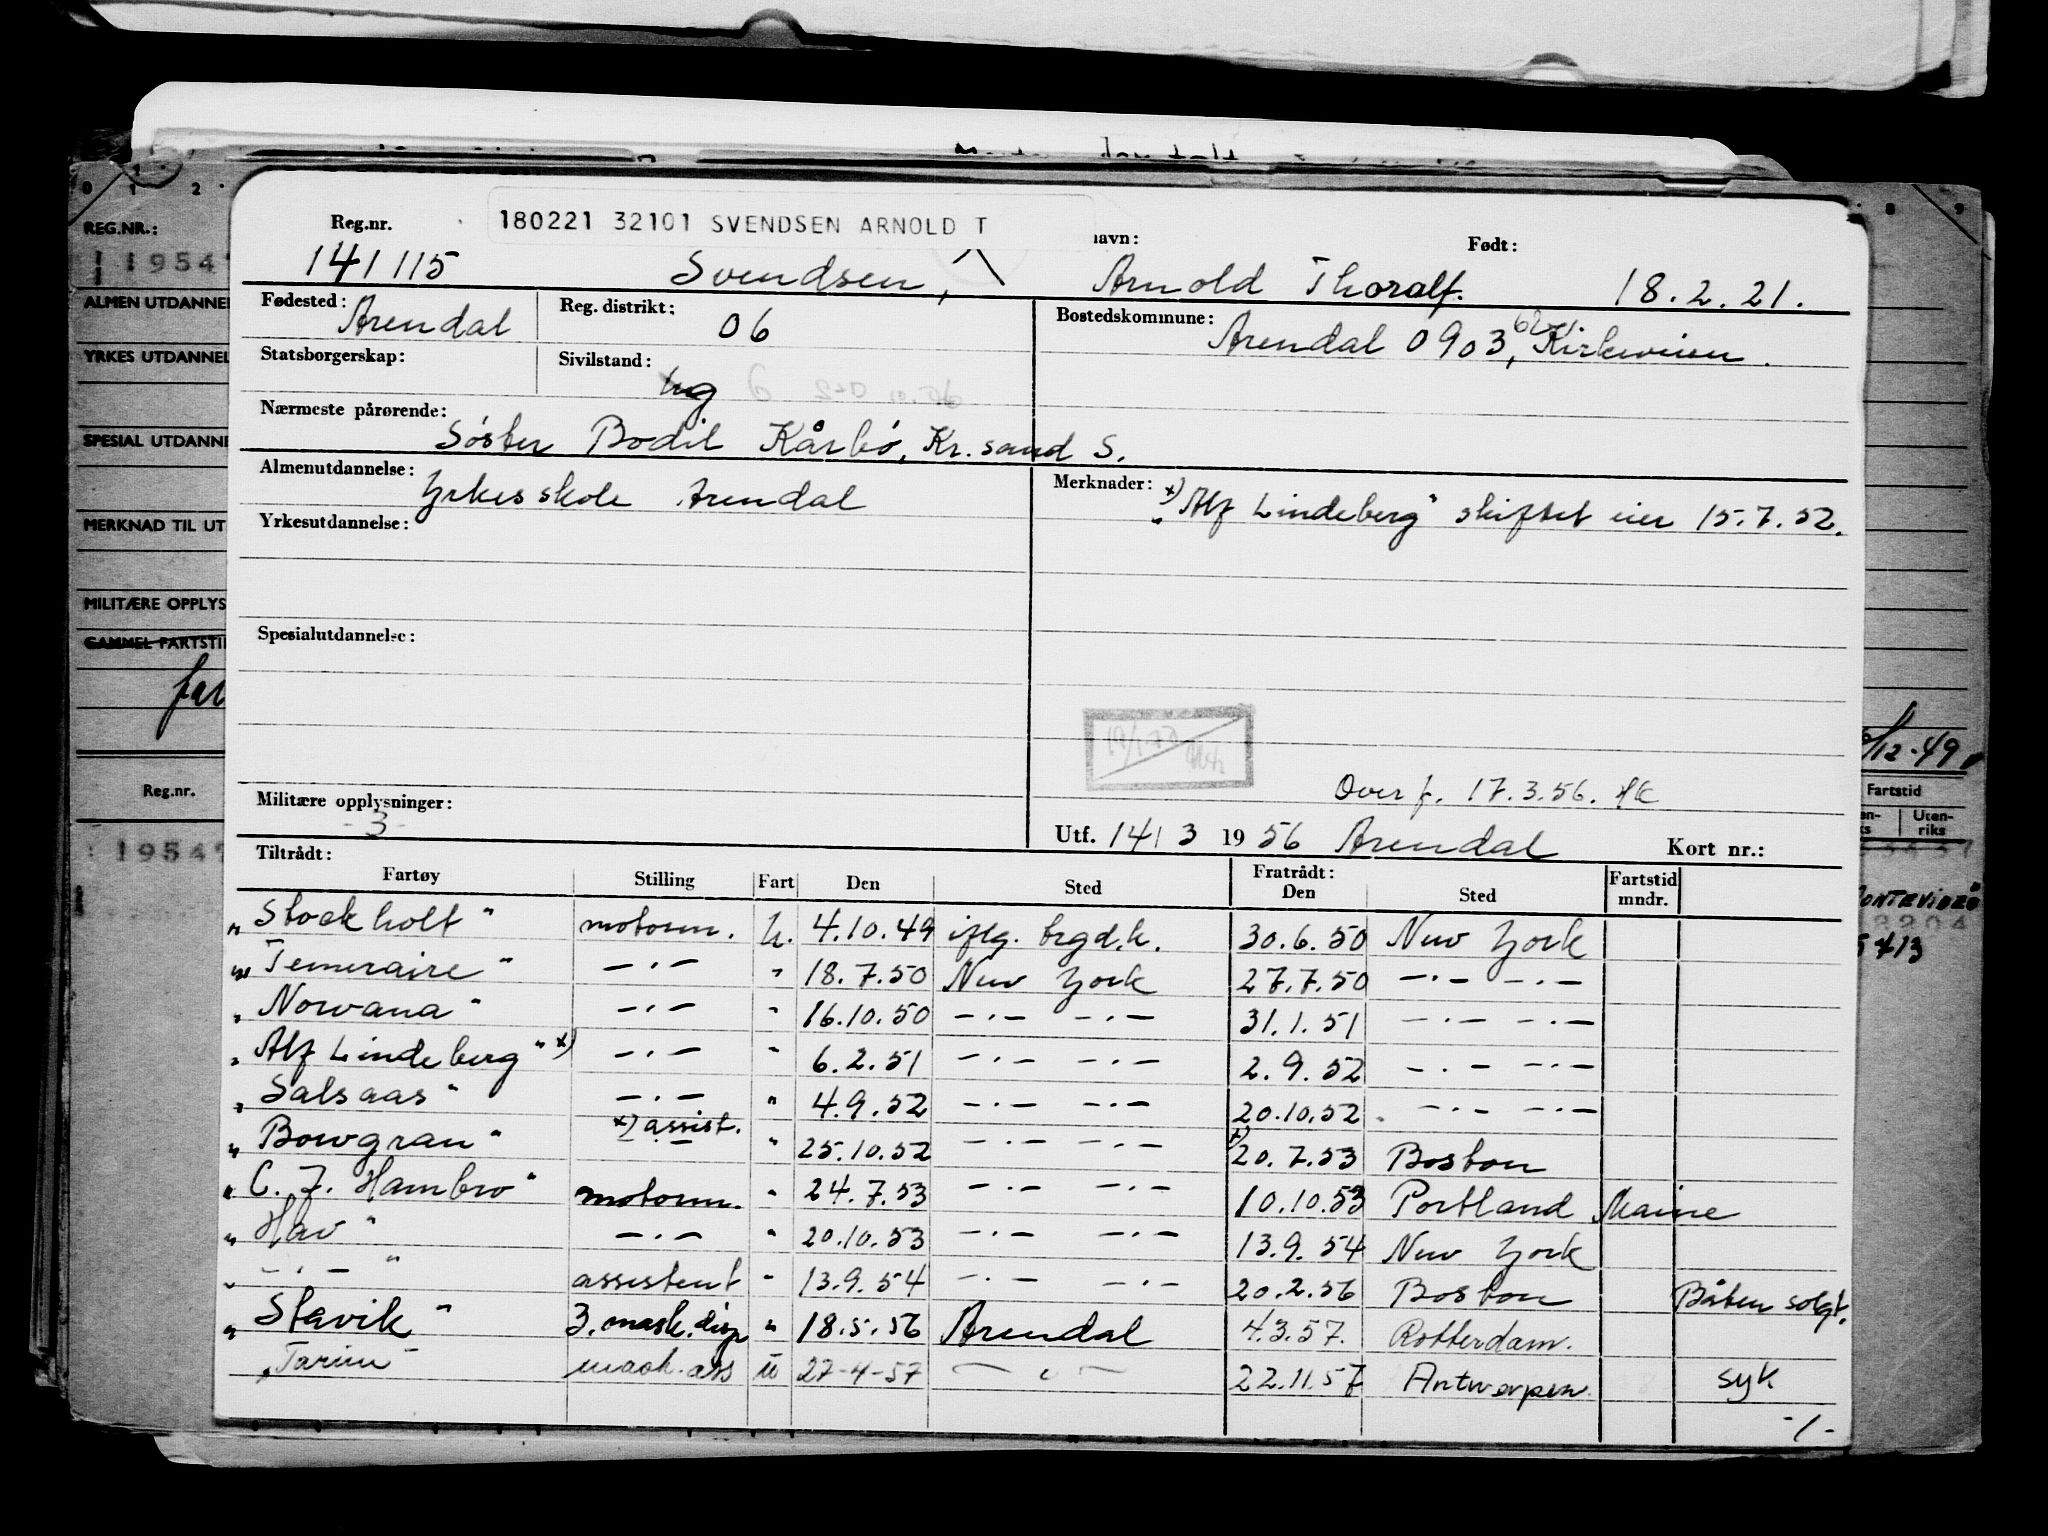 180221 32101 SVENDSEN ARNOLD T
Reg.nr. navn: Født:
141115 Svendsen, Arnold Thoralf. 18.2.21.
Fødested: Arendal Reg. distrikt: 06 Bostedskommune: Arendal 0903, Kirkeveien.
Statsborgerskap: Sivilstand: ug
Nærmeste pårørende: Søster Bodil Kårbø, Kr. sand S.
Almenutdannelse: Yrkesskole Arendal
Merknader: x) "Alf Lindeberg" skiftet eier 15.7.52.
Yrkesutdannelse:
Spesialutdannelse:
Overf. 17.3.56.
Militære opplysninger:
-3-
Utf. 14/3 1956 Arendal Kort nr.:
Tiltrådt: Fratrådt: Fartstid
Fartøy Stilling Fart Den Sted Den Sted mndr.
"Stockholt" motorm. u. 4.10.49 iflg. brgd.k. 30.6.50 New York
"Temeraire" -.- " 18.7.50 New York 27.7.50 -.- -.-
"Norvana" -.- " 16.10.50 -.- -.- 31.1.51 -.- -.-
"Alf Lindeberg" x) -.- " 6.2.51 -.- -.- 2.9.52 -.- -.-
"Salsaas" -.- " 4.9.52 -.- -.- 20.10.52 -.- -.-
"Bowgran" x) assist. " 25.10.52 -.- -.- x) 20.7.53 Boston
"C. J. Hambro" motorm. " 24.7.53 -.- -.- 10.10.53 Portland Maine
"Hav" -.- " 20.10.53 -.- -.- 13.9.54 New York
" -.- " assistent " 13.9.54 -.- -.- 20.2.56 Boston Båten solgt.
"Stavik" 3. mask. disp " 18.5.56 Arendal 4.3.57. Rotterdam.
"Tarim" mask. ass u 27-4-57 - " - 22.11.57 Antwerpen syk
-/-
0 1 2 8 9
REG.NR.:
19547
ALMEN UTDANNEL
YRKES UTDANNEL
SPESIAL UTDANNE
MERKNAD TIL UT
MILITÆRE OPPLYS
GAMMEL FARTSTI
12-49
Reg.nr. Fartstid
Uten-
riks
19547
MONTEVIDEO
3204
5413